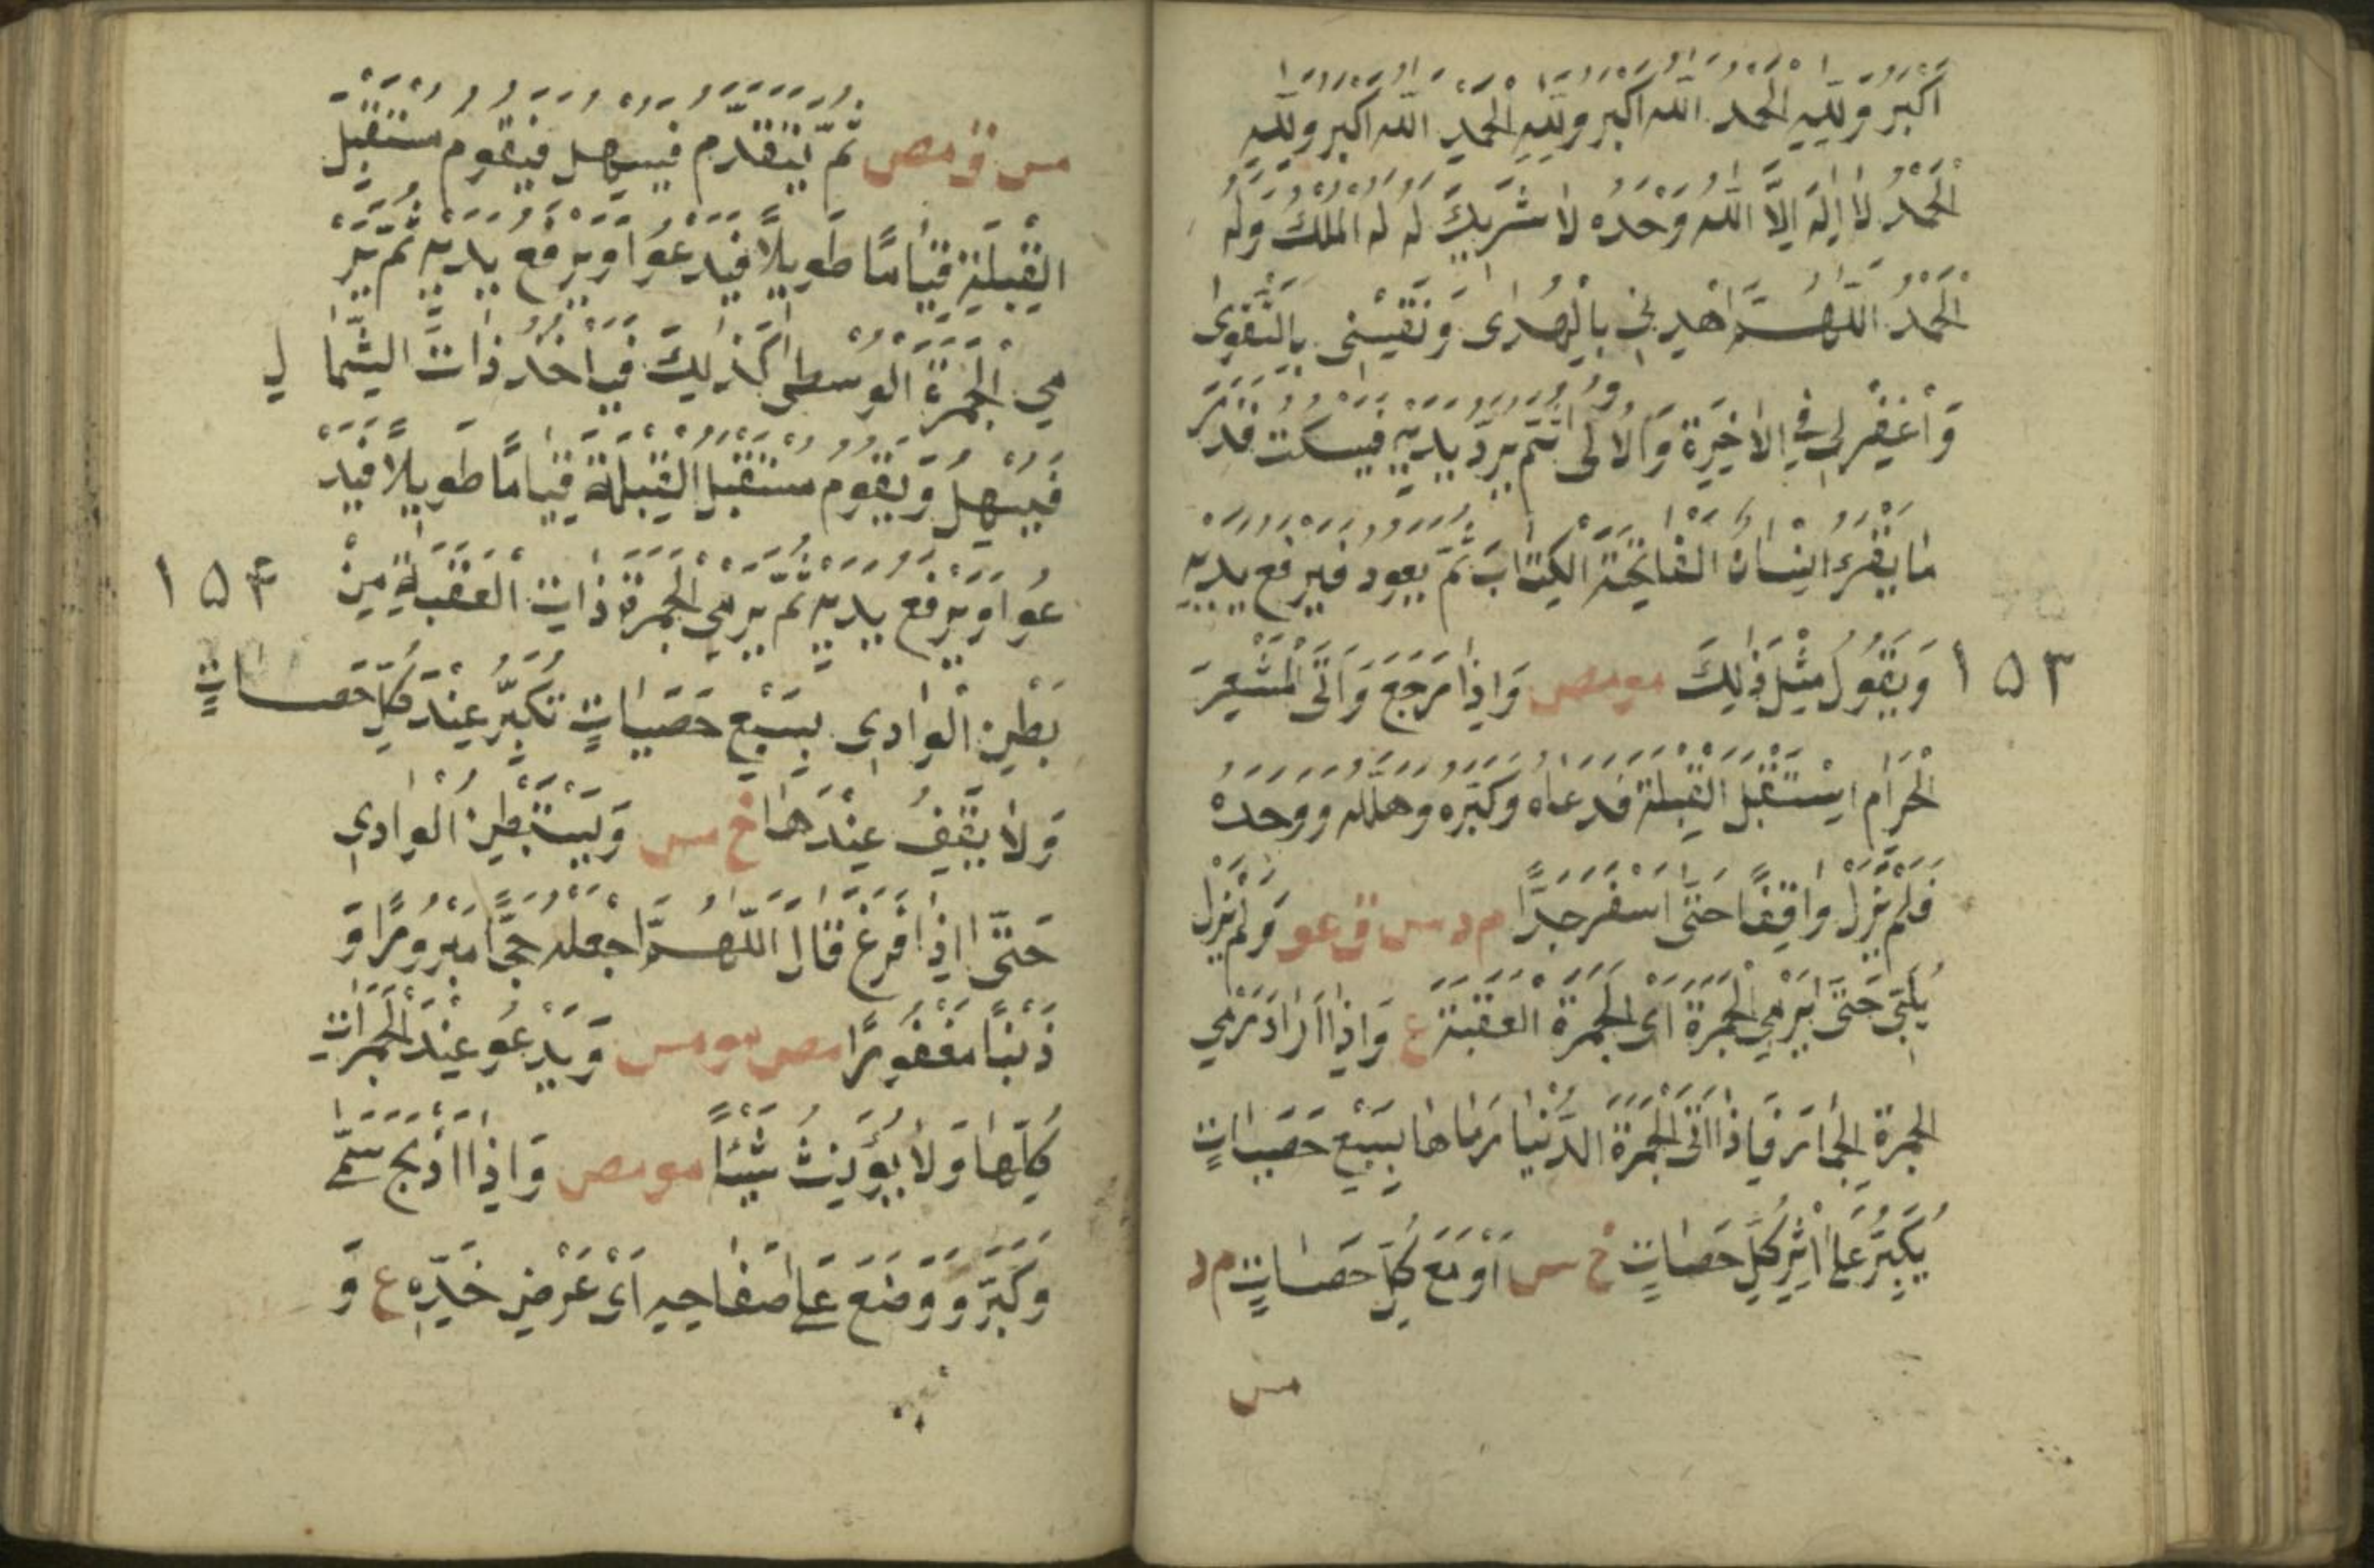 اَكْبَرُ وَلِلّٰهِ الْحَمْدُ اَللّٰهُ اَكْبَرُ وَلِلّٰهِ الْحَمْدُ اَللّٰهُ اَكْبَرُ وَلِلّٰهِ
الْحَمْدُ لَا اِلٰهَ اِلَّا اللّٰهُ وَحْدَهُ لَا شَرِيكَ لَهُ لَهُ الْمُلْكُ وَلَهُ
الْحَمْدُ اَللّٰهُمَّ اهْدِنِي بِالْهُدٰى وَنَقِّنِي بِالتَّقْوٰى
وَاغْفِرْ لِي فِي الْاٰخِرَةِ وَالْاُولٰى ثُمَّ يَرُدُّ يَدَيْهِ فَيَسْكُتُ قَدْرَ
مَا يَقْرَءُ اِنْسَانٌ الْفَاتِحَةَ الْكِتَابَ ثُمَّ يَعُودُ فَيَرْفَعُ يَدَيْهِ
١٥٣ وَيَقُولُ مِثْلَ ذٰلِكَ مومص وَاِذَا رَجَعَ وَاَتَى الْمَشْعَرَ
الْحَرَامَ اِسْتَقْبَلَ الْقِبْلَةَ فَدَعَاهُ وَكَبَّرَهُ وَهَلَّلَهُ وَوَحَّدَهُ
فَلَمْ يَزَلْ وَاقِفًا حَتّٰى اَسْفَرَ جِدًّا م د س ق عو وَلَمْ يَزَلْ
يُلَبِّي حَتّٰى يَرْمِيَ الْجَمْرَةَ اَيْ الْجَمْرَةَ الْعَقَبَةَ ع وَاِذَا اَرَادَ رَمْيَ
الْجَمْرَةِ الْجِمَارَ فَاِذَا اَتَى الْجَمْرَةَ الدُّنْيَا رَمَاهَا بِسَبْعِ حَصَيَاتٍ
يُكَبِّرُ عَلٰى اَثَرِ كُلِّ حَصَاتٍ خ س اَوْ مَعَ كُلِّ حَصَاتٍ م د
مس
مس ق مص ثُمَّ يَتَقَدَّمُ فَيُسْهِلُ فَيَقُومُ مُسْتَقْبِلَ
الْقِبْلَةِ قِيَامًا طَوِيلًا فَيَدْعُوا وَيَرْفَعُ يَدَيْهِ ثُمَّ يَرْ
مِي الْجَمْرَةَ الْوُسْطٰى كَذٰلِكَ فَيَأْخُذُ ذَاتَ الشِّمَا لِ
فَيُسْهِلُ وَيَقُومُ مُسْتَقْبِلَ الْقِبْلَةَ قِيَامًا طَوِيلًا فَيَدْ
عُوا وَيَرْفَعُ يَدَيْهِ ثُمَّ يَرْمِي الْجَمْرَةَ ذَاتِ الْعَقَبَةِ مِنْ ١٥۴
بَطْنِ الْوَادِي بِسَبْعِ حَصَيَاتٍ تُكَبِّرُ عِنْدَ كُلِّ حَصَاتٍ
وَلَا يَقِفُ عِنْدَهَا خ س وَيَسْتَبْطِنُ الْوَادِي
حَتّٰى اِذَا فَرَغَ قَالَ اَللّٰهُمَّ اجْعَلْهُ حَجًّا مَبْرُورًا وَّ
ذَنْبًا مَغْفُورًا مص مومس وَيَدْعُو عِنْدَ الْجَمَرَاتِ
كُلِّهَا وَلَا يُوَقِّتُ شَيْئًا مومص وَاِذَا ذَبَحَ سَمّٰى
وَكَبَّرَ وَوَضَعَ عَلٰى صَفَاحِهِ اَيْ عَرْضِ خَدِّهِ ع وَ